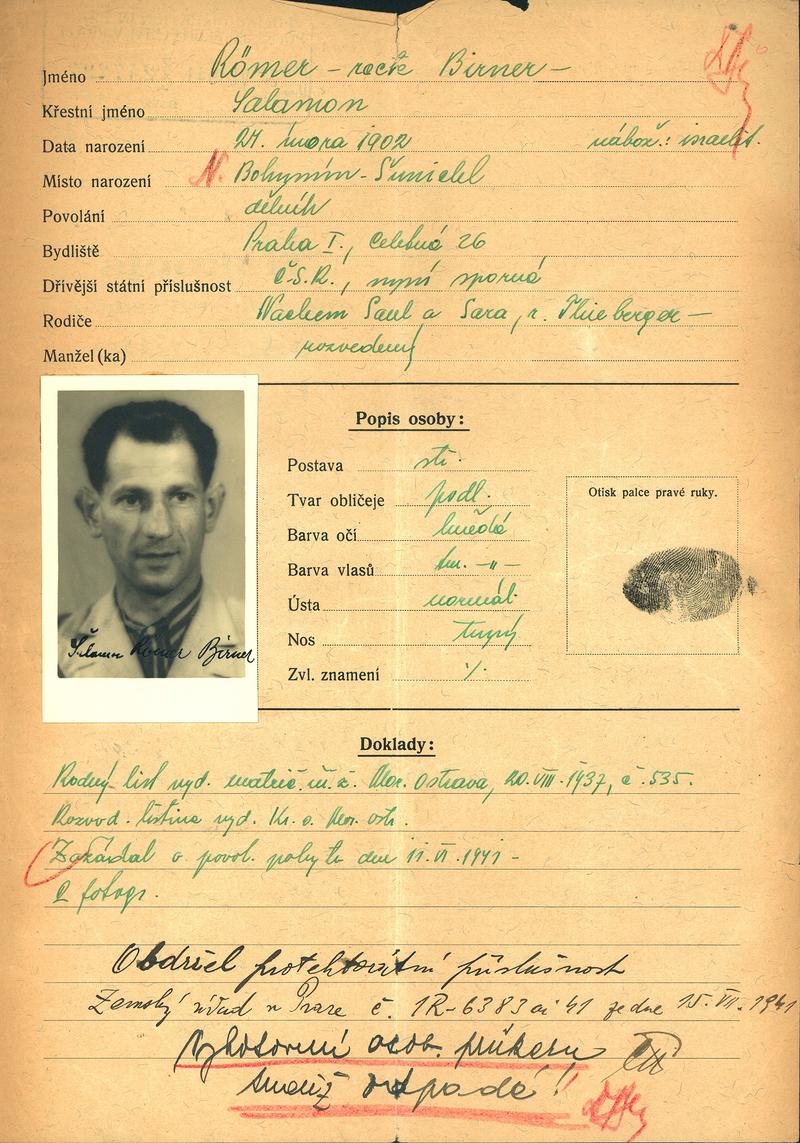 Jméno Römer – recte Birner –
Křestní jméno Salamon
Data narození 27. února 1902 nábož.: israelit.
Místo narození N. Bohumín - Šunichl
Povolání dělník
Bydliště Praha I., Celetná 26
Dřívější státní příslušnost Č.S.R., nyní sporná
Rodiče Nachem Saul a Sara, r. Thieberger –
Manžel (ka) rozvedený
Popis osoby:
Postava stř.
Tvar obličeje podl.
Barva očí hnědá
Barva vlasů tm. –„–
Ústa normál.
Nos tupý
Zvl. znamení ·/.
Otisk palce pravé ruky.
Salamon Römer Birner
Doklady:
Rodný list vyd. matrič. ú. ž. Mor. Ostrava, 20.VIII.1937, č. 535.
Rozvod. listina vyd. Kr. s. Mor. ostr.
Zažádal o povol. pobytu dne 11.VI.1941 –
2 fotogr.
Obdržel protektorátní příslušnost
Zemský úřad v Praze č. 1R-6383 ai 41 ze dne 15.VII.1941
Vyhotovení osob. průkazu
tudíž odpadá!